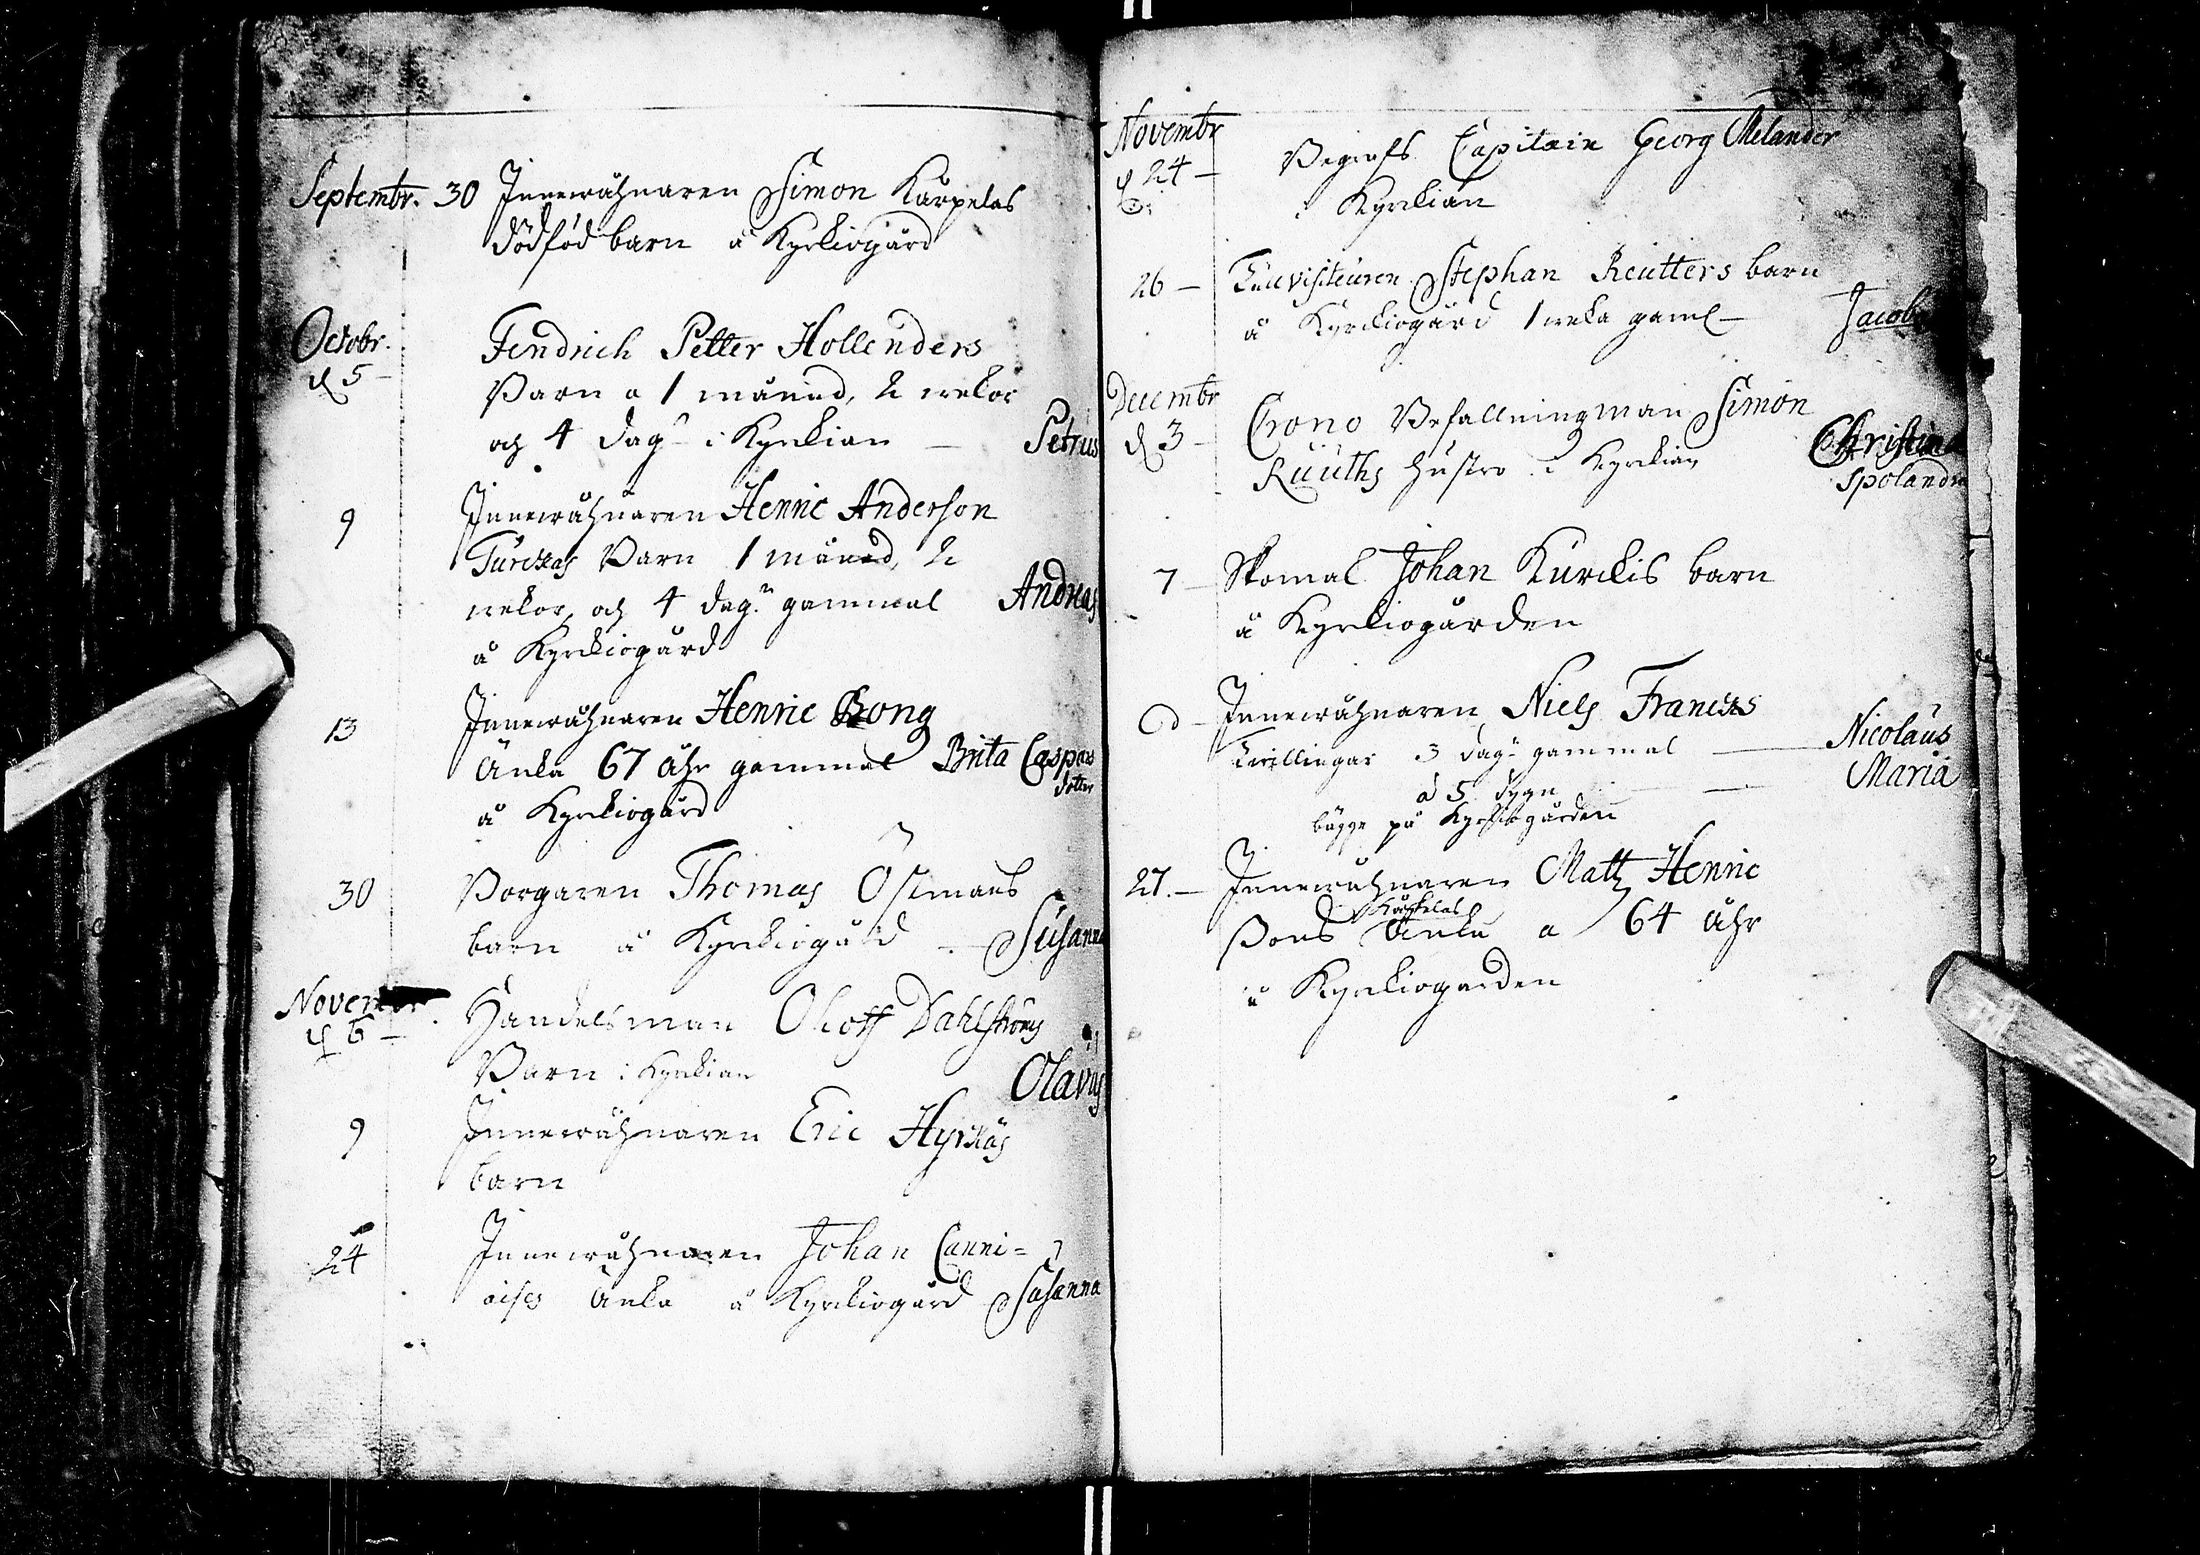 Septembr. 30 Innewåhnaren Simon Karpelas
dödfödbarn å Kyrkiogård
Octobr. Fendrich Petter Hollenders
d 5 Barn a 1 månad, 2 wekor
och 4 dagr i Kyrkian Petrus
9 Innewåhnaren Henric Anderson
Turckas Barn 1 månad, 2
wekor och 4 dagr gammal Andreas
å Kyrkiogård
13 Innewåhnaren Henric Bong
Änka 67 åhr gammal Brita Caspars
dotter
å Kyrkiogård
30 Borgaren Thomas Östmans
barn å Kyrkiogård Susanna
November Handelsman Oloff Dahlströms
d 6 Barn i Kyrkian Olavus
9 Innewåhnaren Eric Hyrkäs
barn
24 Innewåhnaren Johan Canni=
aises Änka å Kyrkiogård Susanna
Novembr
d 24 Begrofs Capitain Georg Melander
i Kyrkian
26 Stephan Reutters barn
å Kyrkiogård 1 weka gaml Jacob
Decembr Crono Befallningman Simon
d 3 Ruuths hustro i Kyrkian Christina
Spolandra
7 Skomak Johan Kurckis barn
å Kyrkiogården
d Innewåhnaren Niels Franckas
Twillingar 3 dagr gammal Nicolaus
d 5 dygn Maria
bägge på Kyrkiogården
27. Innewåhnaren Matts Henric
sons Änka a 64 åhr
å Kyrkiogården